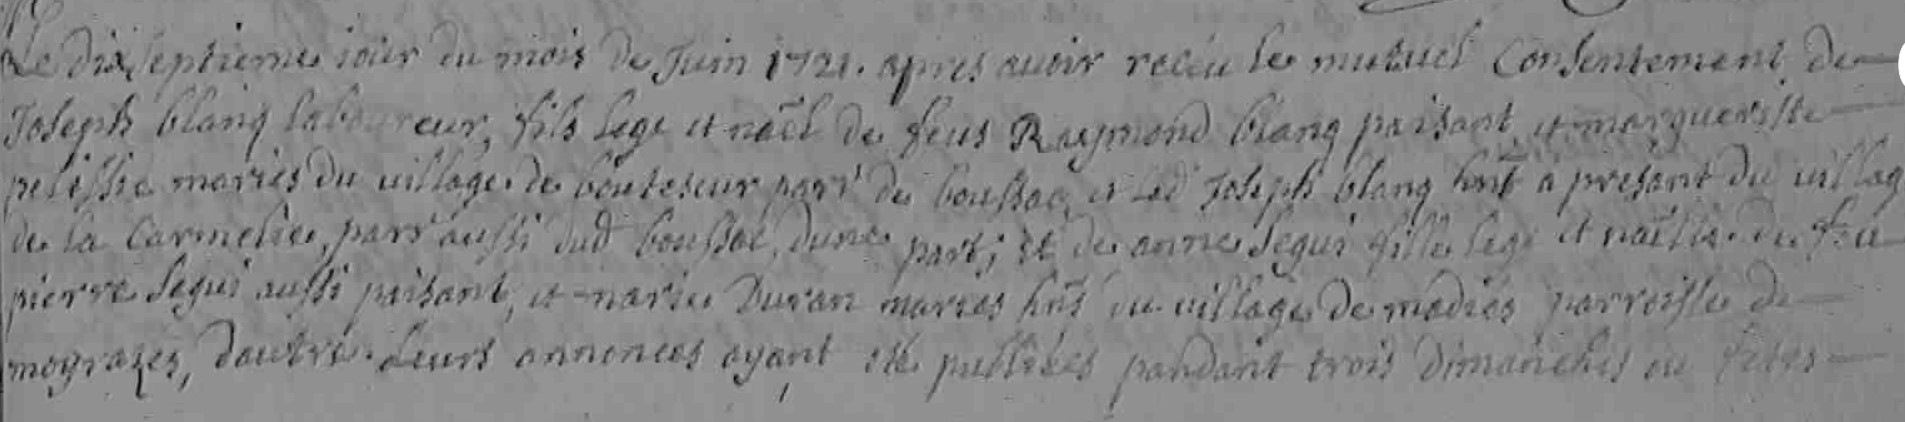 Le dix septieme iour du mois de Juin 1721. apres auoir receu le mutuel Consentement de
Joseph blanq laboureur, fils lege et nãel de feus Raymond blanq paisant, et margueritte
pelissie mariés du village de bouteseur parr' de boussac, et led Joseph blanq hñt a presant du villag
de la Carmelie, parr' aussi dud boussac, dune part, et de anne segui fille lege et nãelle de feu
pierre segui aussi paisant, et marie Duran mariés hñs du village de madies parroisse de
mograzes, dautre. Leurs annonces ayant esté publiées pandant trois dimanches ou fetes